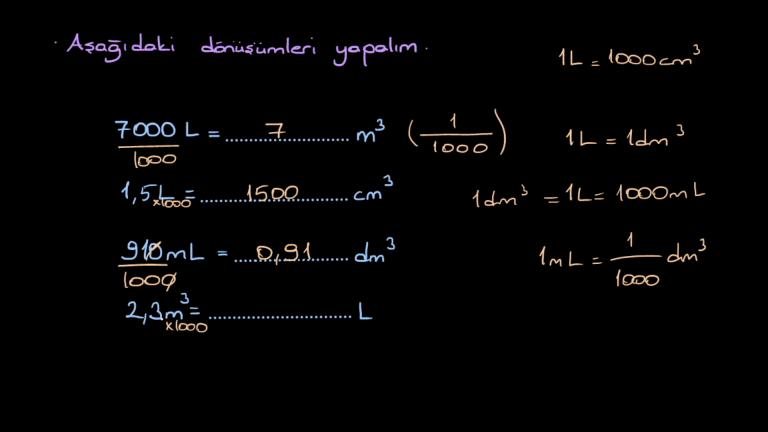 · Aşağıdaki dönüşümleri yapalım.
1L = 1000cm³
7000 L = ........7........ m³ (1/1000)
1000
1L = 1dm³
1,5L = ........1500........ cm³
x1000
1dm³ = 1L = 1000mL
910mL = ........0,91........ dm³
1000
1mL = 1/1000 dm³
2,3m³ = ................ L
x1000